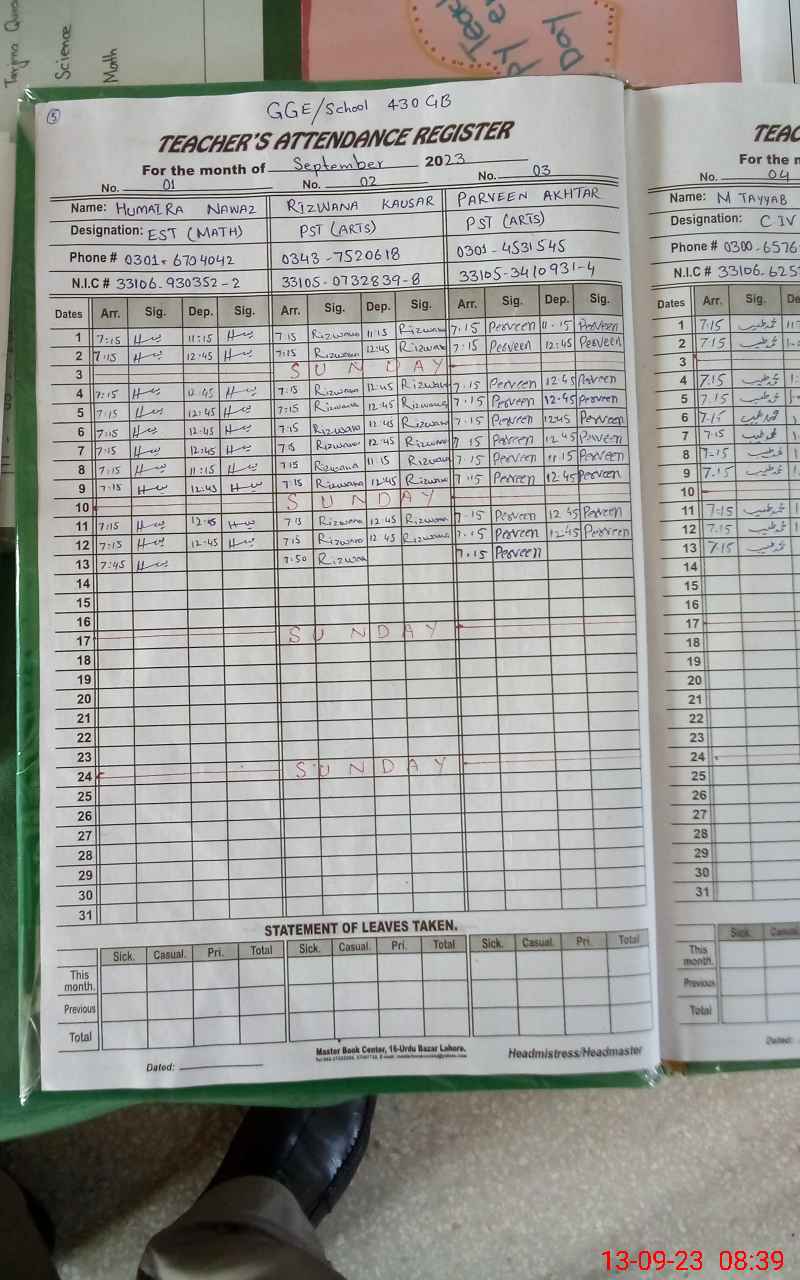 Tarjma Quran
Science
Math
Teach
Day
5
GGE/School 430 GB
TEACHER'S ATTENDANCE REGISTER
For the month of September 2023
No. 01 No. 02 No. 03
Name: HUMAIRA NAWAZ RIZWANA KAUSAR PARVEEN AKHTAR
Designation: EST (MATH) PST (ARTS) PST (ARTS)
Phone # 0301-6704042 0343-7520618 0301-4531545
N.I.C # 33106-930352-2 33105-0732839-8 33105-3410931-4
Dates Arr. Sig. Dep. Sig. Arr. Sig. Dep. Sig. Arr. Sig. Dep. Sig.
1 7:15 11:15 7:15 Rizwana 11 15 Rizwana 7.15 Perveen 11.15 Perveen
2 7:15 12:45 7:15 Rizwana 12:45 Rizwana 7.15 Perveen 12:45 Perveen
3 SUNDAY
4 7:15 12:45 7:15 Rizwana 12:45 Rizwana 7.15 Perveen 12 45 Perveen
5 7:15 12:45 7:15 Rizwana 12:45 Rizwana 7.15 Perveen 12.45 Perveen
6 7:15 12:45 7:15 Rizwana 12:45 Rizwana 7.15 Perveen 12 45 Perveen
7 7:15 12:45 7:15 Rizwana 12:45 Rizwana 7 15 Perveen 12 45 Perveen
8 7:15 11:15 7:15 Rizwana 11 15 Rizwana 7.15 Perveen 11.15 Perveen
9 7:15 12:45 7:15 Rizwana 12:45 Rizwana 7.15 Perveen 12.45 Perveen
10 SUNDAY
11 7:15 12:45 7:15 Rizwana 12:45 Rizwana 7.15 Perveen 12 45 Perveen
12 7:15 12:45 7:15 Rizwana 12 45 Rizwana 7.15 Perveen 12.45 Perveen
13 7:45 7:50 Rizwana 7.15 Perveen
14
15
16
17 SUNDAY
18
19
20
21
22
23
24 SUNDAY
25
26
27
28
29
30
31
STATEMENT OF LEAVES TAKEN.
Sick. Casual. Pri. Total Sick. Casual. Pri. Total Sick. Casual. Pri. Total
This month.
Previous
Total
Dated:
Master Book Center, 16-Urdu Bazar Lahore.
Headmistress/Headmaster
TEAC
For the m
No. 04
Name: M TAYYAB
Designation: C IV
Phone # 0300-6576
N.I.C # 33106-625
Dates Arr. Sig. De
1 7:15 محمد طیب
2 7.15 محمد طیب
3
4 7.15 محمد طیب
5 7.15 محمد طیب
6 7.15 محمد طیب
7 7.15 محمد طیب
8 7.15 محمد طیب
9 7.15 محمد طیب
10
11 7:15 محمد طیب
12 7.15 محمد طیب
13 7.15 محمد طیب
14
15
16
17
18
19
20
21
22
23
24
25
26
27
28
29
30
31
Sick. Casual
This month.
Previous
Total
Dated:
13-09-23 08:39